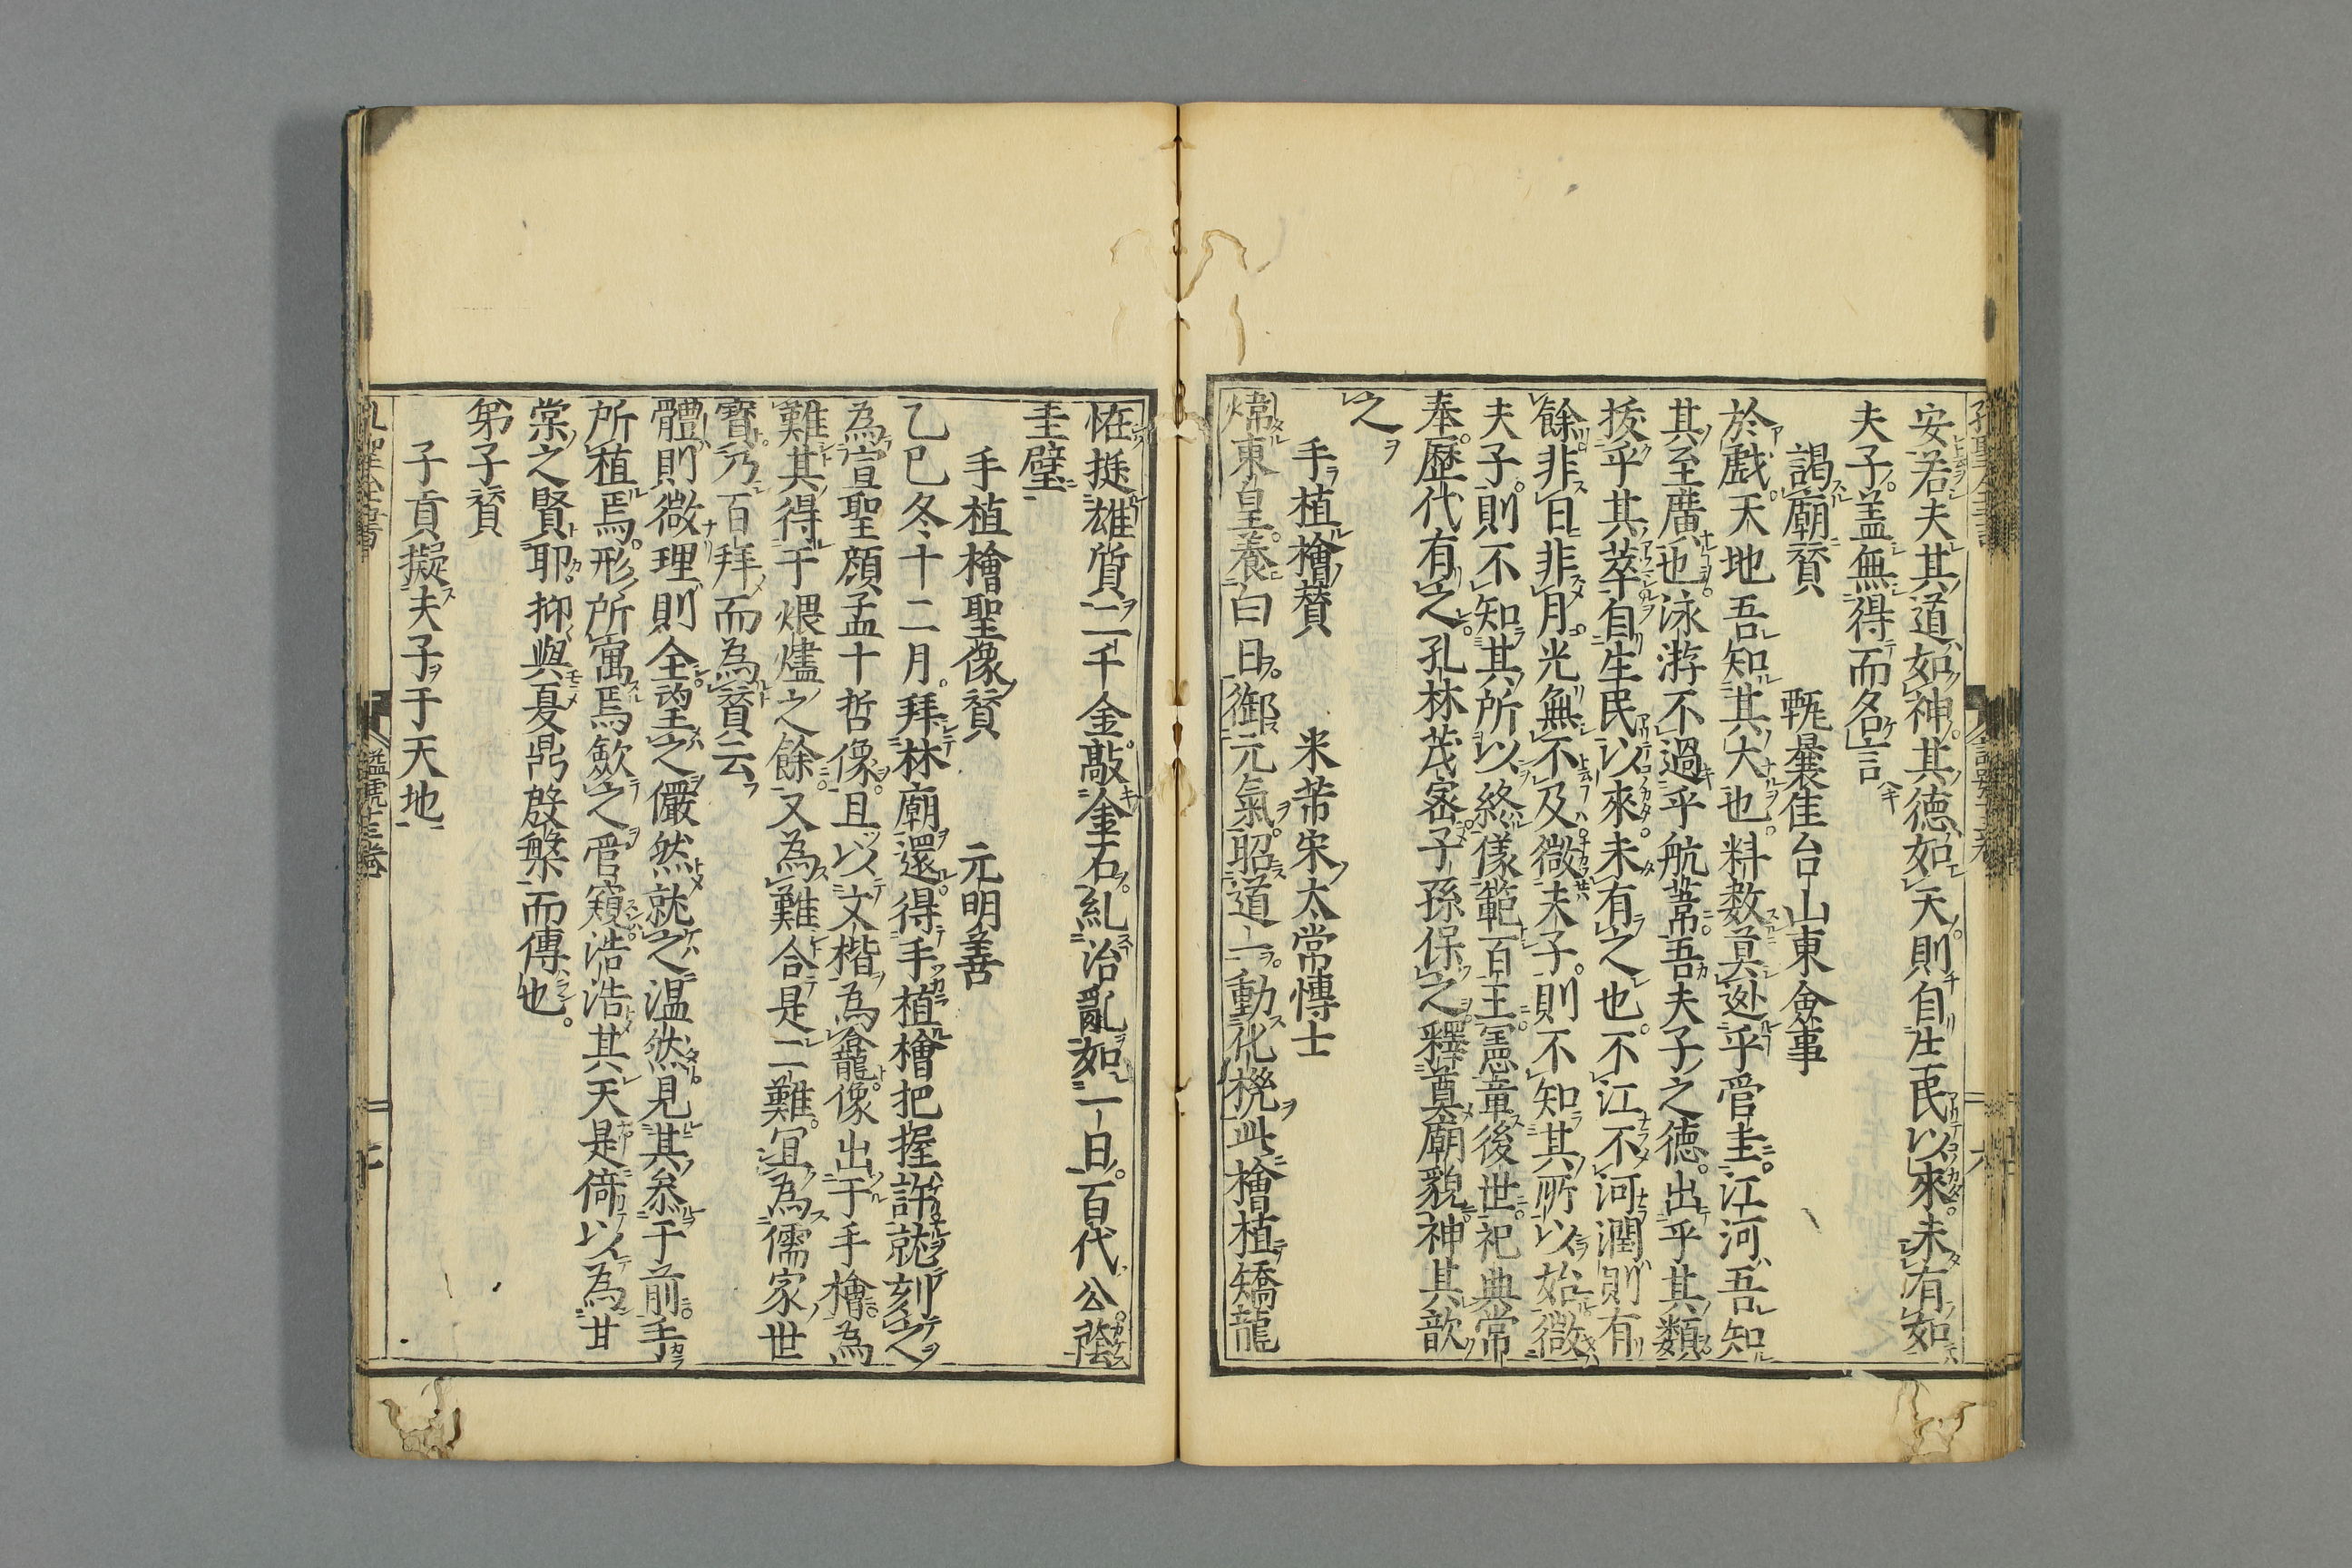 安若夫其道如神其德如天則自生民以來未有如
夫子盖無得而名言
謁廟賛　甄曩佳台山東僉事
於戲天地吾知其大也料数莫逊乎管圭江河吾知
其至廣也泳游不過乎航葦吾夫子之徳出乎其類
拔乎其萃自生民以來未有之也不江不河潤則有
餘非日非月光無不及微夫子則不知其所以始微
夫子則不知其所以終儀範百王憲章後世祀典常
奉歷代有之孔林茂密子孫保之釋奠廟貌神其歆
之
手植檜賛　米芾宋太常博士
煒東皇養白日御元氣昭道一動化機此檜植矯龍
怪挺雄質二千金敲金石糺治亂如一日百代公蔭
圭璧
手植檜聖像賛　元明善
乙巳冬十二月拜林廟還得手植檜把握許就刻之
為宣聖顔孟十哲像且以文楷為龕像出于手檜為
難其得于煨燼之餘又為難合是二難冝為儒家世
寶乃百拜而為賛云
體則微理則全望之儼然就之温然見其叅于前手
所植焉形所寓焉歛之管窺浩浩其天是倚以為甘
棠之賢耶抑與夏鼎殷槃而傳也
弟子賛
子貢擬夫子于天地